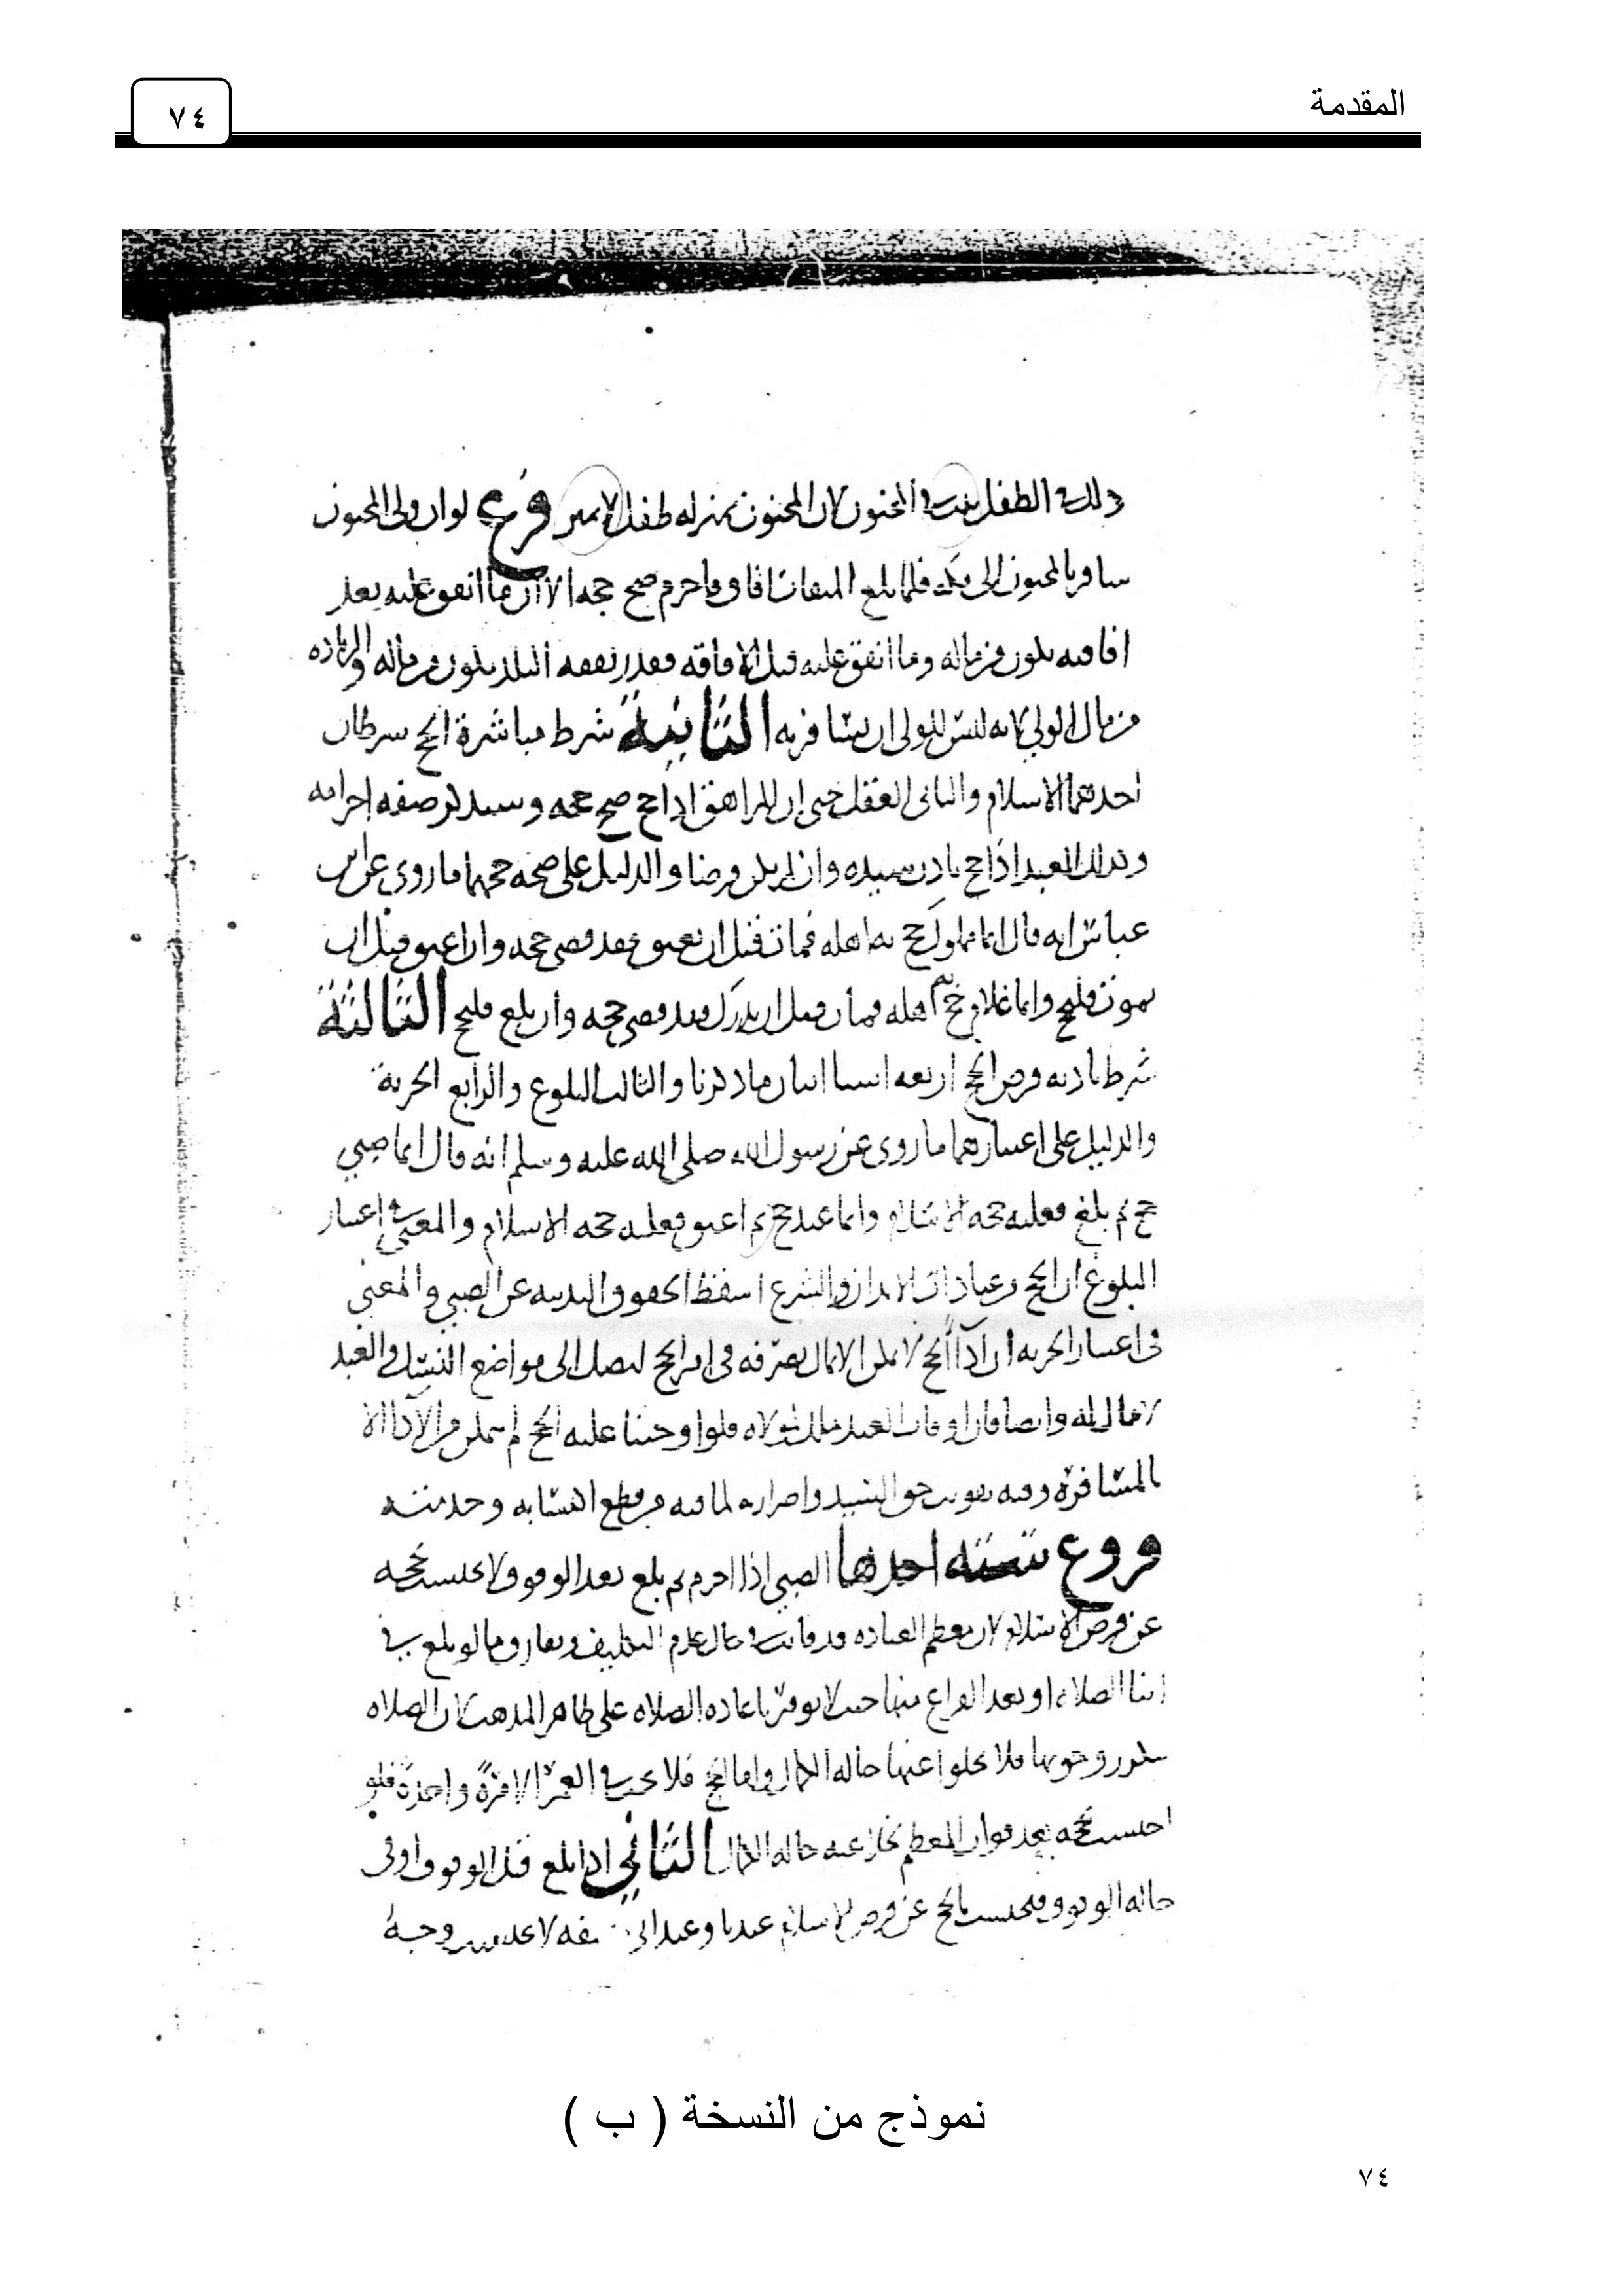 المقدمة
٧٤
ذلك الطفل يثبت في المجنون لان المجنون بمنزله طفل لا يميز فرع لو ان ولي المجنون
سافر بالمجنون الى مكه فلما بلغ الميقات افاق فاحرم صح حجه الا ان ما انفق عليه بعد
افاقته يكون من ماله وما انفق عليه قبل الافاقه فقدر نفقه البلد يكون من ماله والزياده
من مال الولي لانه ليس للولي ان يسافر به الثانية شرط مباشرة الحج شرطان
احدهما الاسلام والثاني العقل حتى ان المراهق اذا حج صح حجه وسنذكر صفه احرامه
وكذلك العبد اذا حج باذن سيده وان لم يكن فرضا والدليل على صحه حجهما ما روي عن ابن
عباس انه قال ايما مملوك حج به اهله فمات قبل ان يعتق فقد قضى حجه وان اعتق قبل ان
يموت فليحج وايما غلام حج به اهله فمات قبل ان يدرك فقد قضى حجه وان بلغ فليحج الثالثة
شرط تاديه فرض الحج اربعه اشيا اثنان ما ذكرنا والثالث البلوغ والرابع الحرية
والدليل على اعتبارهما ما روي عن رسول الله صلى الله عليه وسلم انه قال ايما صبي
حج ثم بلغ فعليه حجه الاسلام وايما عبد حج ثم اعتق فعليه حجه الاسلام والمعنى في اعتبار
البلوغ ان الحج من عبادات الابدان والشرع اسقط الحقوق البدنيه عن الصبي والمعنى
في اعتبار الحريه ان اداء الحج لا يمكن الا بمال يصرفه في امر الحج ليصل الى مواضع النسك والعبد
لا مال له وايضا فان اوقات العبد ملك لمولاه فلو اوجبنا عليه الحج لم يتمكن من الاداء الا
بالمسافرة وفيه تفويت حق السيد واضراره لما فيه من قطع اكتسابه وخدمته
فروع ستة احدها الصبي اذا احرم ثم بلغ بعد الوقوف لا يحتسب حجه
عن فرض الاسلام لان معظم العباده قد فاتت في حال عدم التكليف ويفارق ما لو بلغ في
اثنا الصلاه او بعد الفراغ منها حيث لا يؤمر باعاده الصلاه على ظاهر المذهب لان الصلاه
يتكرر وجوبها فلا يخلوا عنها حاله الكمال واما الحج فلا يجب في العمر الا مرة واحدة فلو
احتسب حجه بعد فوات المعظم لخلا عنه حاله الكمال الثاني اذا بلغ قبل الوقوف او في
حاله الوقوف فيحتسب بالحج عن فرض الاسلام عندنا وعند ابي حنيفه لا يحتسب وجه
نموذج من النسخة ( ب )
٧٤